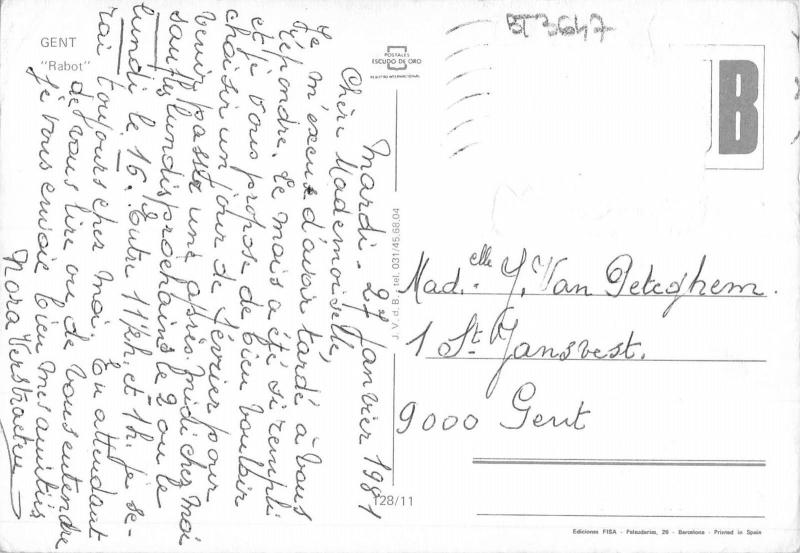 GENT
"Rabot"
POSTALES
ESCUDO DE ORO
REGISTRO INTERNACIONAL
BT3647
B
Mardi - 27 Janvier 1981
Chère Mademoiselle,
Je m'excuse d'avoir tardé à vous
répondre. Le mois a été si rempli
et je vous propose de bien vouloir
choisir un jour de février pour
venir passer une après-midi chez moi
sauf les lundis prochains le 2 ou le
lundi le 16. Entre 11½h. et 1h. je se-
rai toujours chez moi. En attendant
de vous lire ou de vous entendre
je vous envoie bien mes amitiés
Nora Verstraeten
J. V. d. B., tel. 031/45.68.04
128/11
Mad.elle Y. Van Peteghem.
1 St Jansvest.
9000 Gent
Ediciones FISA - Palaudarias, 26 - Barcelona - Printed in Spain